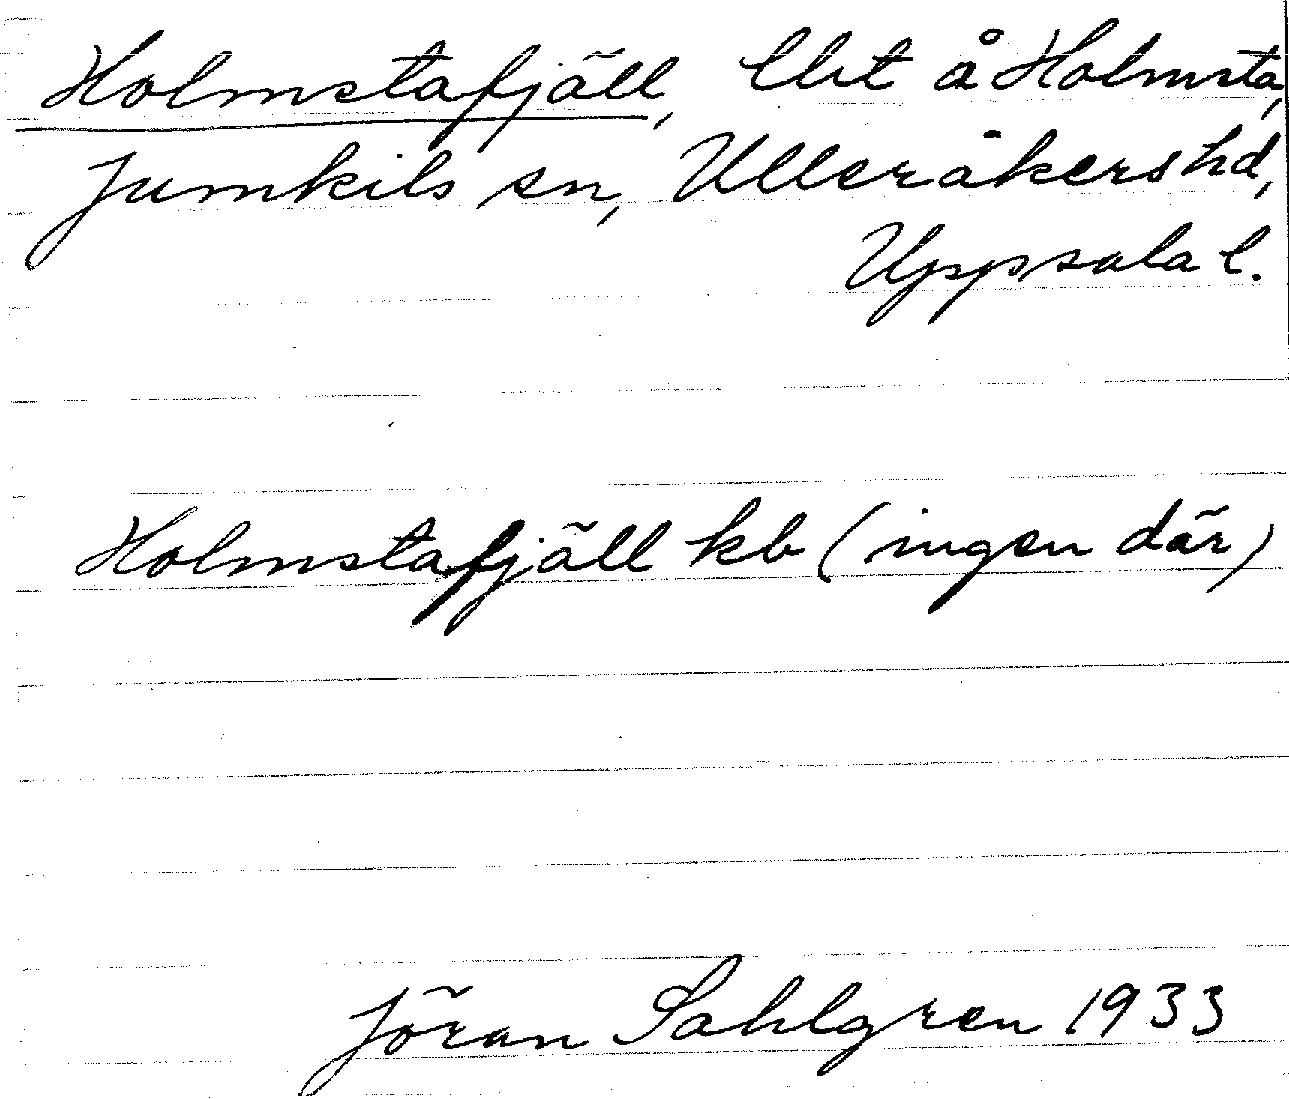 Holmstafjäll, lht å Holmsta,
Jumkils sn, Ulleråkers hd,
Uppsala l.
Holmstafjäll kb (ingen där)
Jöran Sahlgren 1933